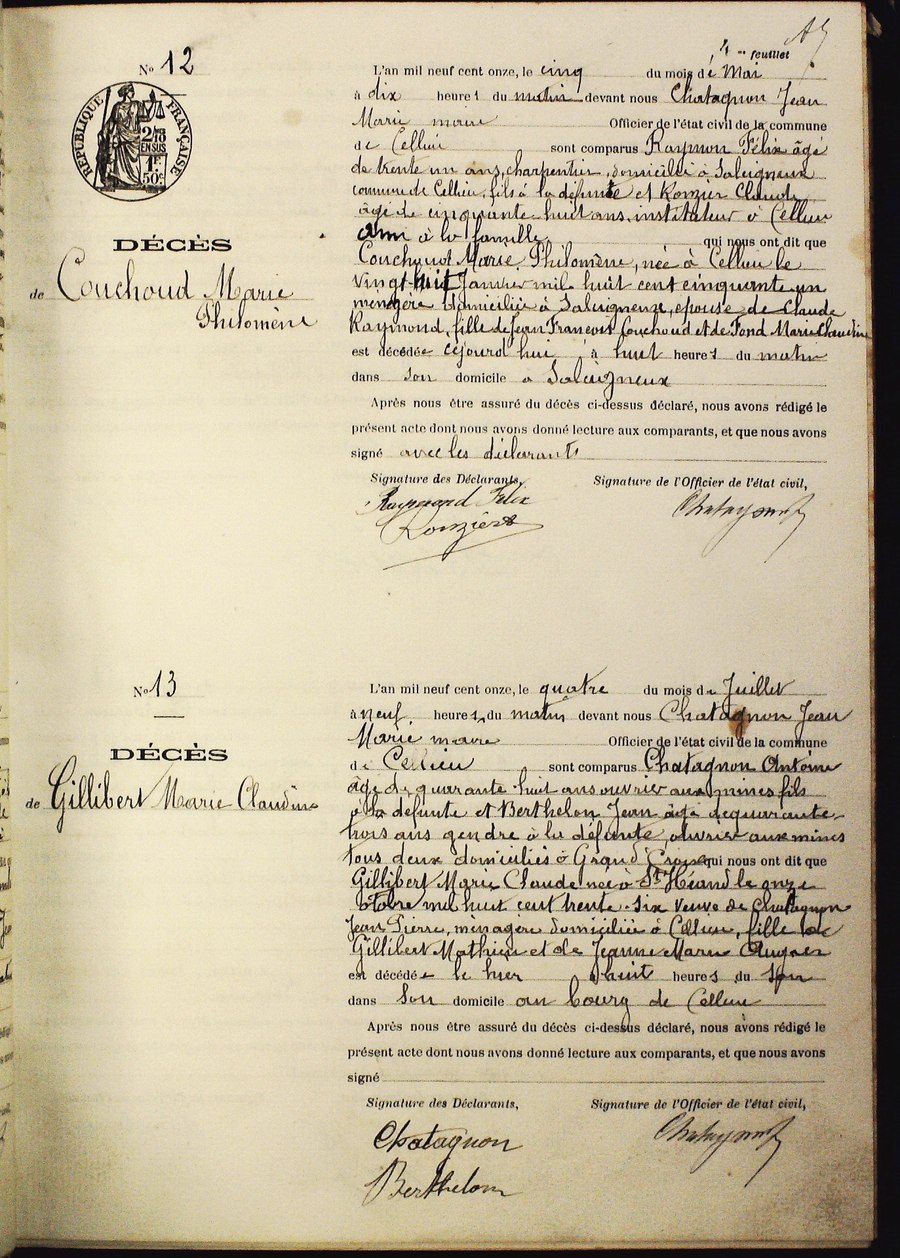 4me feuillet
No 12
RÉPUBLIQUE FRANÇAISE
2/10
EN SUS
1F
50c
DÉCÈS
de Couchoud Marie
Philomène
L'an mil neuf cent onze, le cinq du mois de Mai
à dix heures du matin devant nous Chatagnon Jean
Marie maire Officier de l'état civil de la commune
de Cellieu sont comparus Raymon Félix âgé
de trente un ans, charpentier, domicilié à Salcigneux
commune de Cellieu, fils à la défunte et Ronzier Claude
âgé de cinquante huit ans, instituteur à Cellieu
ami à la famille qui nous ont dit que
Couchoud Marie Philomène, née à Cellieu le
vingt-huit Janvier mil huit cent cinquante un
ménagère domiciliée à Salcigneux, épouse de Claude
Raymond, fille de Jean François Couchoud et de Fond Marie Claudine
est décédée cejourd'hui à huit heures du matin
dans son domicile à Salcigneux
Après nous être assuré du décès ci-dessus déclaré, nous avons rédigé le
présent acte dont nous avons donné lecture aux comparants, et que nous avons
signé avec les déclarants
Signature des Déclarants, Signature de l'Officier de l'état civil,
Raymond Félix Chatagnon
Ronzier
No 13
DÉCÈS
de Gillibert Marie Claudine
L'an mil neuf cent onze, le quatre du mois de Juillet
à neuf heures du matin devant nous Chatagnon Jean
Marie maire Officier de l'état civil de la commune
de Cellieu sont comparus Chatagnon Antoine
âgé de quarante huit ans ouvrier aux mines fils
à la défunte et Berthelon Jean âgé de quarante
trois ans gendre à la défunte, ouvrier aux mines
tous deux domiciliés à Grand'Croix qui nous ont dit que
Gillibert Marie Claude née à St Héand le onze
Octobre mil huit cent trente-six veuve de Chatagnon
Jean Pierre, ménagère domiciliée à Cellieu, fille de
Gillibert Mathieu et de Jeanne Marie
est décédée le hier à huit heures du soir
dans son domicile au bourg de Cellieu
Après nous être assuré du décès ci-dessus déclaré, nous avons rédigé le
présent acte dont nous avons donné lecture aux comparants, et que nous avons
signé
Signature des Déclarants, Signature de l'Officier de l'état civil,
Chatagnon Chatagnon
Berthelon